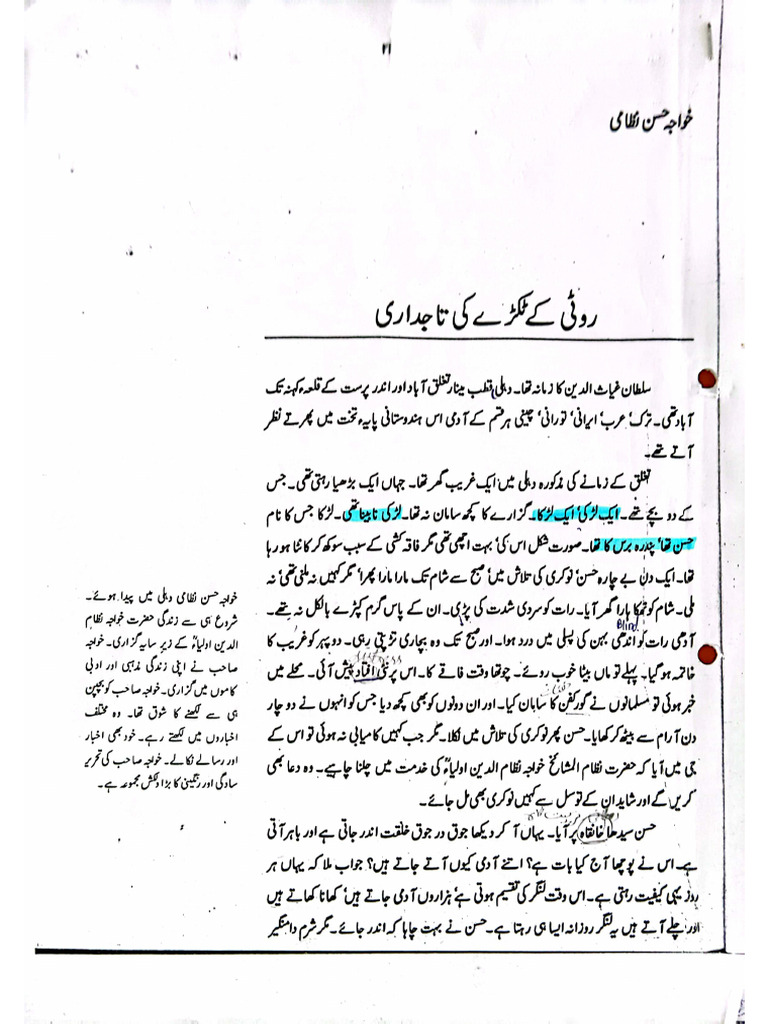 ۲۱
خواجہ حسن نظامی
روٹی کے ٹکڑے کی تاجداری
سلطان غیاث الدین کا زمانہ تھا۔ دہلی قطب مینار تغلق آباد اور اندر پرست کے قلعہ ء کہنہ تک
آباد تھی۔ ترک' عرب' ایرانی' تورانی' چینی ہر قسم کے آدمی اس ہندوستانی پایہء تخت میں پھرتے نظر
آتے تھے۔
تغلق کے زمانے کی مذکورہ دہلی میں ایک غریب گھر تھا۔ جہاں ایک بڑھیا رہتی تھی۔ جس
کے دو بچے تھے۔ ایک لڑکی' ایک لڑکا۔ گزارے کا کچھ سامان نہ تھا۔ لڑکی نابینا تھی۔ لڑکا جس کا نام
حسن تھا' پندرہ برس کا تھا۔ صورت شکل اس کی' بہت اچھی تھی مگر فاقہ کشی کے سبب سوکھ کر کانٹا ہو رہا
تھا۔ ایک دن بے چارہ حسن' نوکری کی تلاش میں' صبح سے شام تک مارا مارا پھرا' مگر کہیں نہ ملنی تھی' نہ
ملی۔ شام کو تھکا ہارا گھر آیا۔ رات کو سردی شدت کی پڑی۔ ان کے پاس گرم کپڑے بالکل نہ تھے۔
Blind
آدھی رات کو اندھی بہن کی پسلی میں درد ہوا۔ اور صبح تک وہ بیچاری تڑپتی رہی۔ دوپہر کو غریب کا
خاتمہ ہو گیا۔ پہلے تو ماں بیٹا خوب روئے۔ چوتھا وقت فاقے کا۔ اس پر نئی افتاد پیش آئی۔ محلے میں
خبر ہوئی تو مسلمانوں نے گور کفن کا سامان کیا۔ اور ان دونوں کو بھی کچھ دیا جس کو انہوں نے دو چار
دن آرام سے بیٹھ کر کھایا۔ حسن پھر نوکری کی تلاش میں نکلا۔ مگر جب کہیں کامیابی نہ ہوئی تو اس کے
جی میں آیا کہ حضرت نظام المشائخ خواجہ نظام الدین اولیاؒء کی خدمت میں چلنا چاہیے۔ وہ دعا بھی
کریں گے اور شاید ان کے توسل سے کہیں نوکری بھی مل جائے۔
حسن سیدھا خانقاہ پر آیا۔ یہاں آ کر دیکھا جوق در جوق خلقت اندر جاتی ہے اور باہر آتی
ہے۔ اس نے پوچھا آج کیا بات ہے؟ اتنے آدمی کیوں آتے جاتے ہیں؟ جواب ملا کہ یہاں ہر
روز یہی کیفیت رہتی ہے۔ اس وقت لنگر کی تقسیم ہوتی ہے' ہزاروں آدمی جاتے ہیں' کھانا کھاتے ہیں
اور چلے آتے ہیں یہ لنگر روزانہ ایسا ہی رہتا ہے۔ حسن نے بہت چاہا کہ اندر جائے۔ مگر شرم دامنگیر
خواجہ حسن نظامی دہلی میں پیدا ہوئے۔
شروع ہی سے زندگی حضرت خواجہ نظام
الدین اولیاؒء کے زیر سایہ گزاری۔ خواجہ
صاحب نے اپنی زندگی مذہبی اور ادبی
کاموں میں گزاری۔ خواجہ صاحب کو بچپن
ہی سے لکھنے کا شوق تھا۔ وہ مختلف
اخباروں میں لکھتے رہے۔ خود بھی اخبار
اور رسالے نکالے۔ خواجہ صاحب کی تحریر
سادگی اور رنگینی کا بڑا دلکش مجموعہ ہے۔